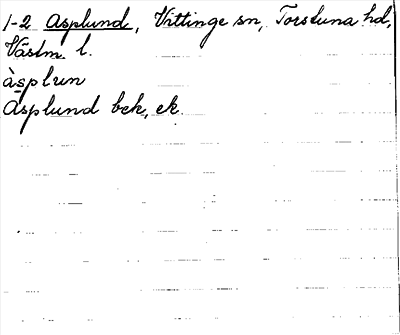 1-2 Asplund, Vittinge sn, Torstuna hd,
Västm. l.
àsplun
Asplund bek, ek.